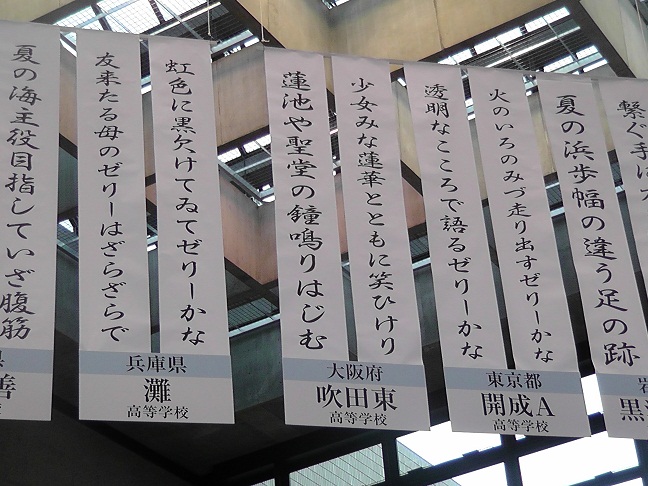 繋ぐ手
夏の浜歩幅の違う足の跡
黒
火のいろのみづ走り出すぜりーかな
透明なこころで語るぜりーかな
東京都
開成A
高等学校
少女みな蓮華とともに笑ひけり
蓮池や聖堂の鐘鳴りはじむ
大阪府
吹田東
高等学校
虹色に黒欠けてゐてゼリーかな
友来たる母のゼリーはざらざらで
兵庫県
灘
高等学校
夏の海主役目指していざ腹筋
県
善